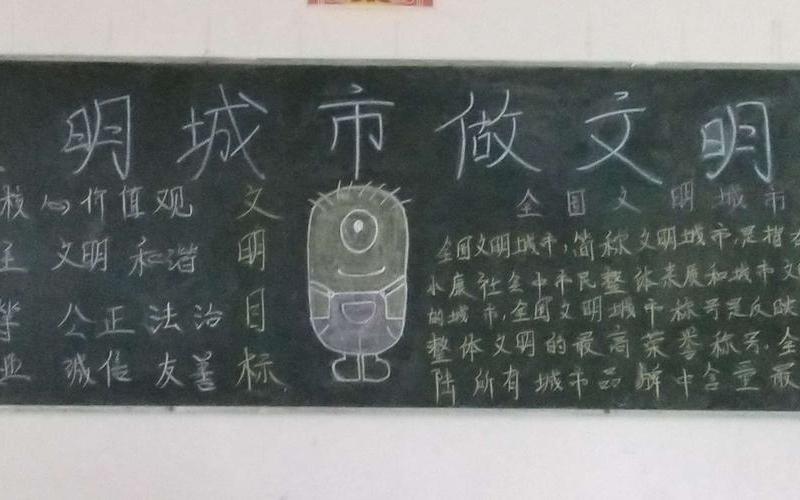 明城市做文明
核心价值观
文明 和谐
公正法治
业 诚信 友善
文明目标
全国文明城市
全国文明城市,简称文明城市,是指在
小康社会中市民整体素质和城市文
的城市,全国文明城市称号是反映
整体文明的最高荣誉称号.全
陆所有城市品牌中含量最